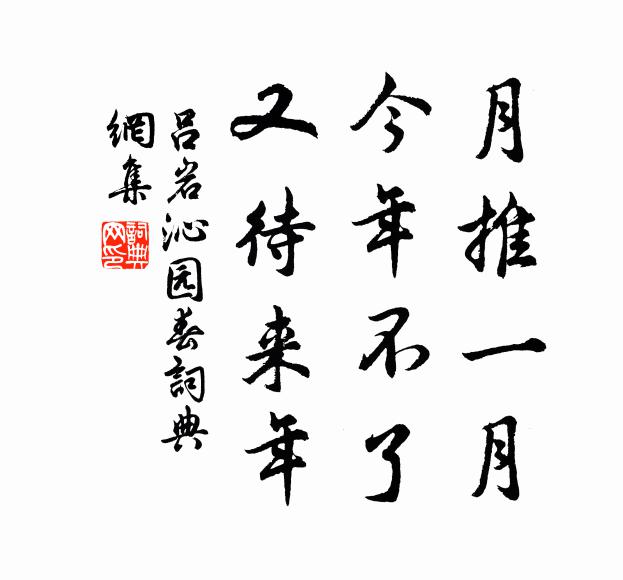 月推一月
今年不了
又待来年
吕岩沁园春詞典
網集
詞典网印